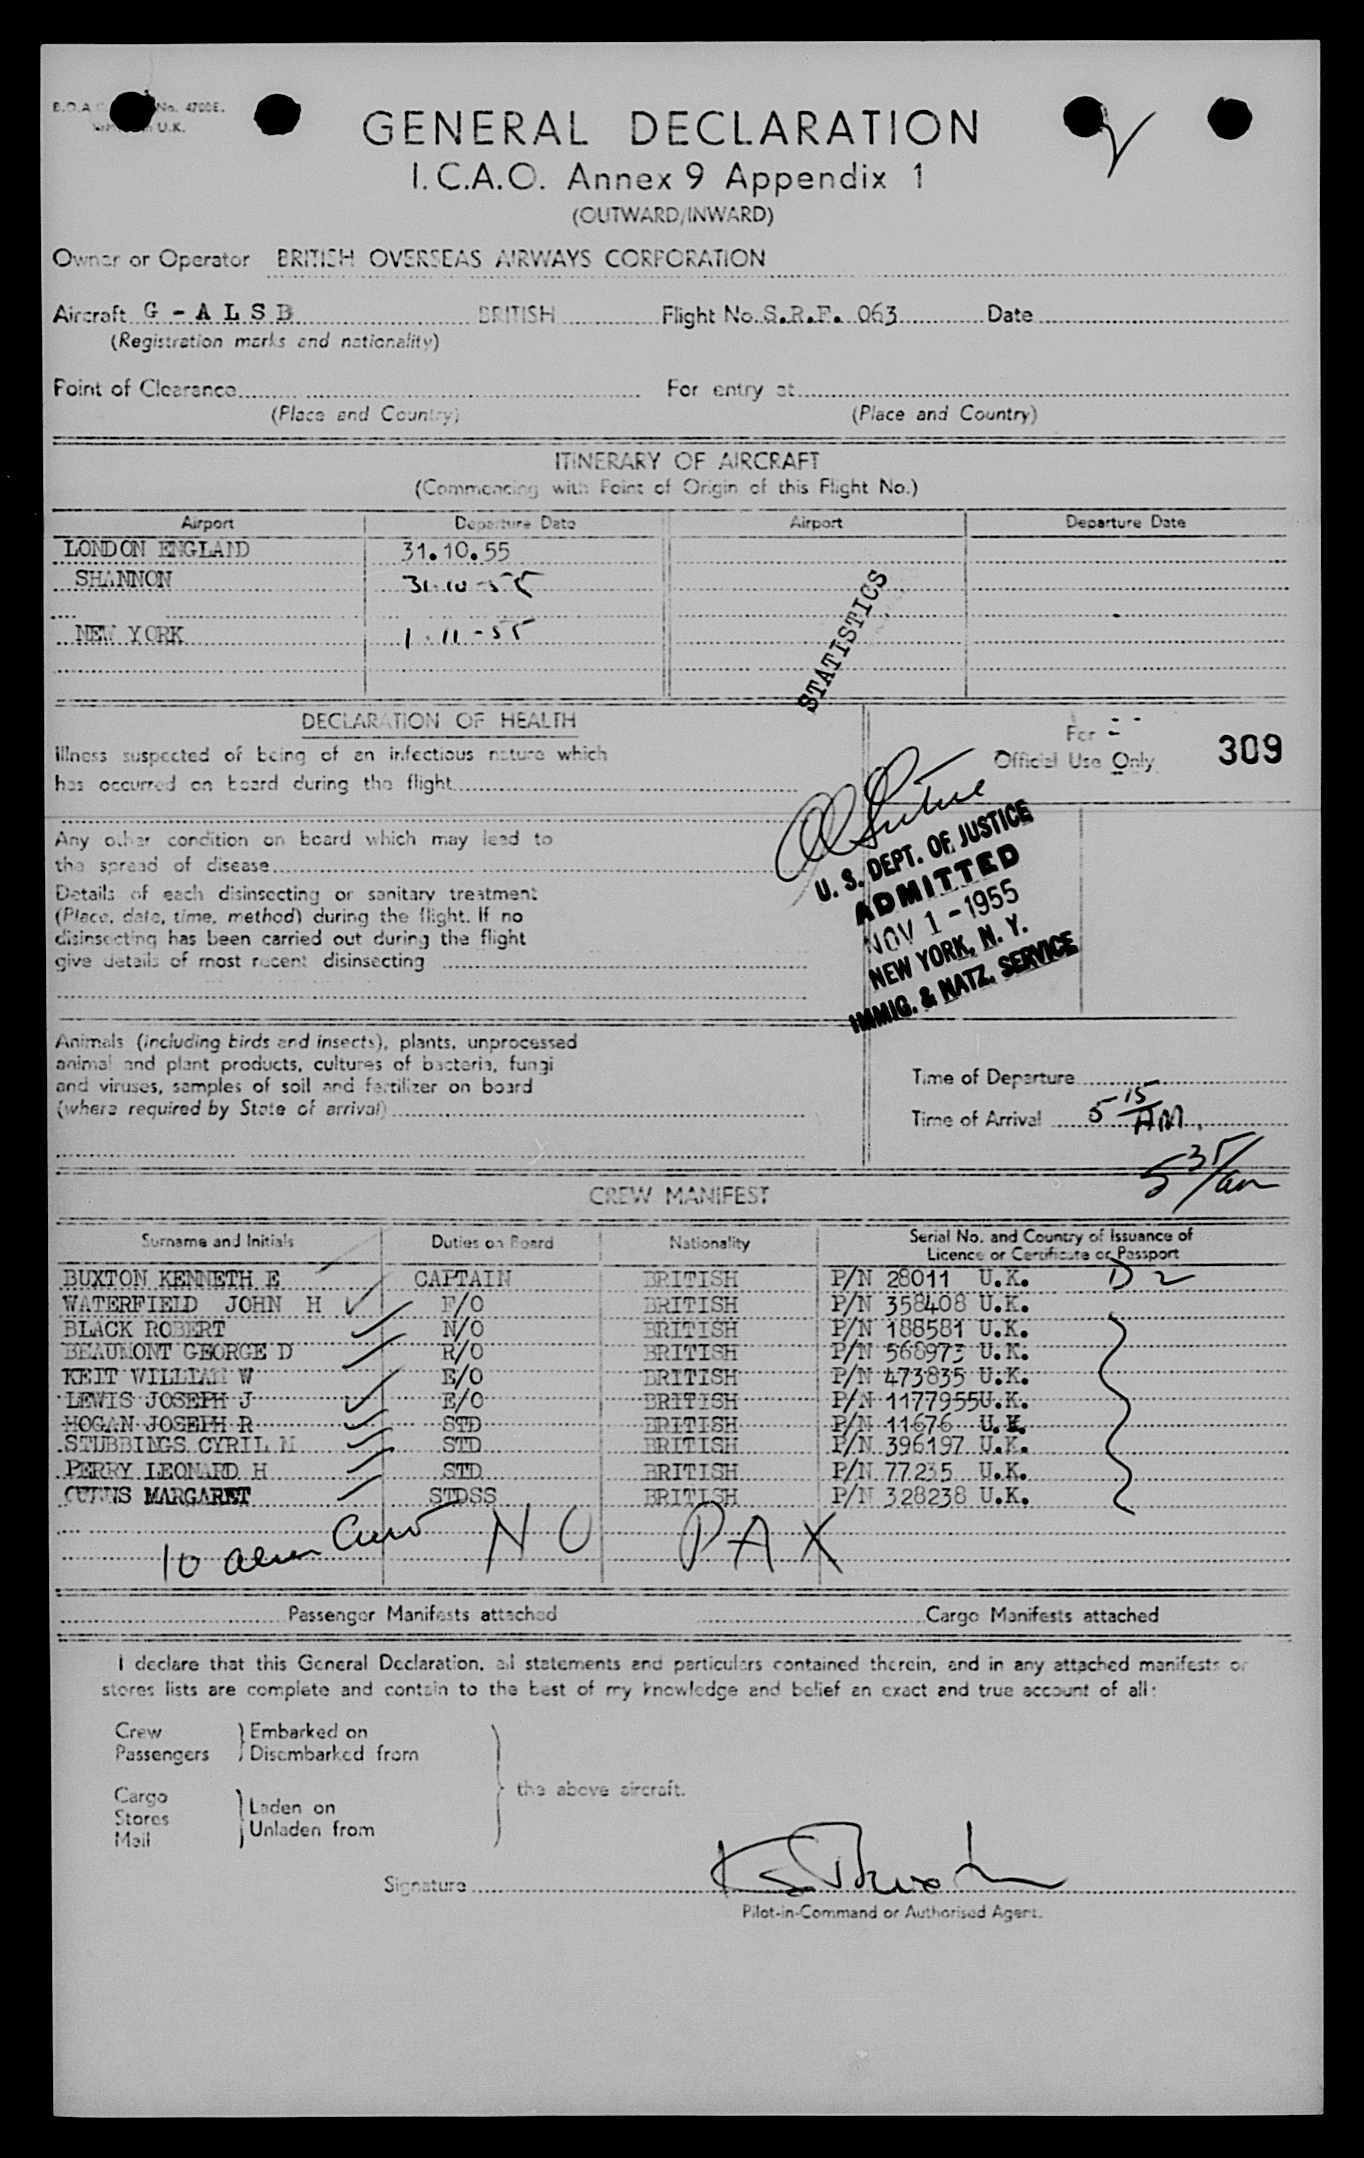 B.O.A.C. No. 4700E.
U.K.
GENERAL DECLARATION
I.C.A.O. Annex 9 Appendix 1
(OUTWARD/INWARD)
Owner or Operator BRITISH OVERSEAS AIRWAYS CORPORATION
Aircraft G - A L S B BRITISH Flight No. S.R.F. 063 Date
(Registration marks and nationality)
Point of Clearance For entry at
(Place and Country) (Place and Country)
ITINERARY OF AIRCRAFT
(Commencing with Point of Origin of this Flight No.)
Airport Departure Date Airport Departure Date
LONDON ENGLAND 31.10.55
SHANNON 31-10-55
NEW YORK 1-11-55
STATISTICS
DECLARATION OF HEALTH
For
Official Use Only 309
Illness suspected of being of an infectious nature which
has occurred on board during the flight
Any other condition on board which may lead to
the spread of disease
Details of each disinsecting or sanitary treatment
(Place, date, time, method) during the flight. If no
disinsecting has been carried out during the flight
give details of most recent disinsecting
U. S. DEPT. OF JUSTICE
ADMITTED
NOV 1 - 1955
NEW YORK, N. Y.
IMMIG. & NATZ. SERVICE
Animals (including birds and insects), plants, unprocessed
animal and plant products, cultures of bacteria, fungi
and viruses, samples of soil and fertilizer on board
(where required by State of arrival)
Time of Departure
Time of Arrival 5 15 AM.
5 35/am
CREW MANIFEST
Surname and Initials Duties on Board Nationality Serial No. and Country of Issuance of
Licence or Certificate or Passport
BUXTON KENNETH E CAPTAIN BRITISH P/N 28011 U.K. D 2
WATERFIELD JOHN H F/O BRITISH P/N 358408 U.K.
BLACK ROBERT N/O BRITISH P/N 188581 U.K.
BEAUMONT GEORGE D R/O BRITISH P/N 568973 U.K.
KEIT WILLIAM W E/O BRITISH P/N 473835 U.K.
LEWIS JOSEPH J E/O BRITISH P/N 1177955U.K.
HOGAN JOSEPH R STD BRITISH P/N 11676 U.K.
STUBBINGS CYRIL M STD BRITISH P/N 396197 U.K.
PERRY LEONARD H STD BRITISH P/N 77235 U.K.
MARGARET STDSS BRITISH P/N 328238 U.K.
10 alien Crew NO PAX
Passenger Manifests attached Cargo Manifests attached
I declare that this General Declaration, all statements and particulars contained therein, and in any attached manifests or
stores lists are complete and contain to the best of my knowledge and belief an exact and true account of all:
Crew Embarked on
Passengers Disembarked from
the above aircraft.
Cargo
Stores Laden on
Mail Unladen from
Signature
Pilot-in-Command or Authorised Agent.